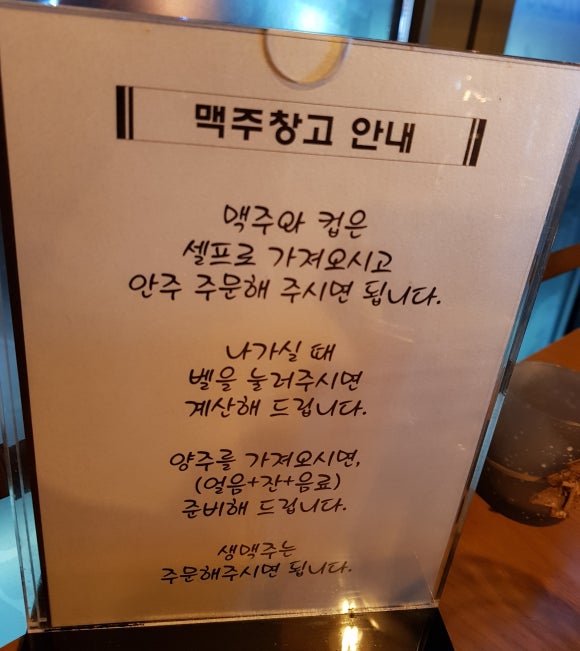 맥주창고 안내
맥주와 컵은
셀프로 가져오시고
안주 주문해 주시면 됩니다.
나가실 때
벨을 눌러주시면
계산해 드립니다.
양주를 가져오시면,
(얼음+잔+음료)
준비해 드립니다.
생맥주는
주문해주시면 됩니다.